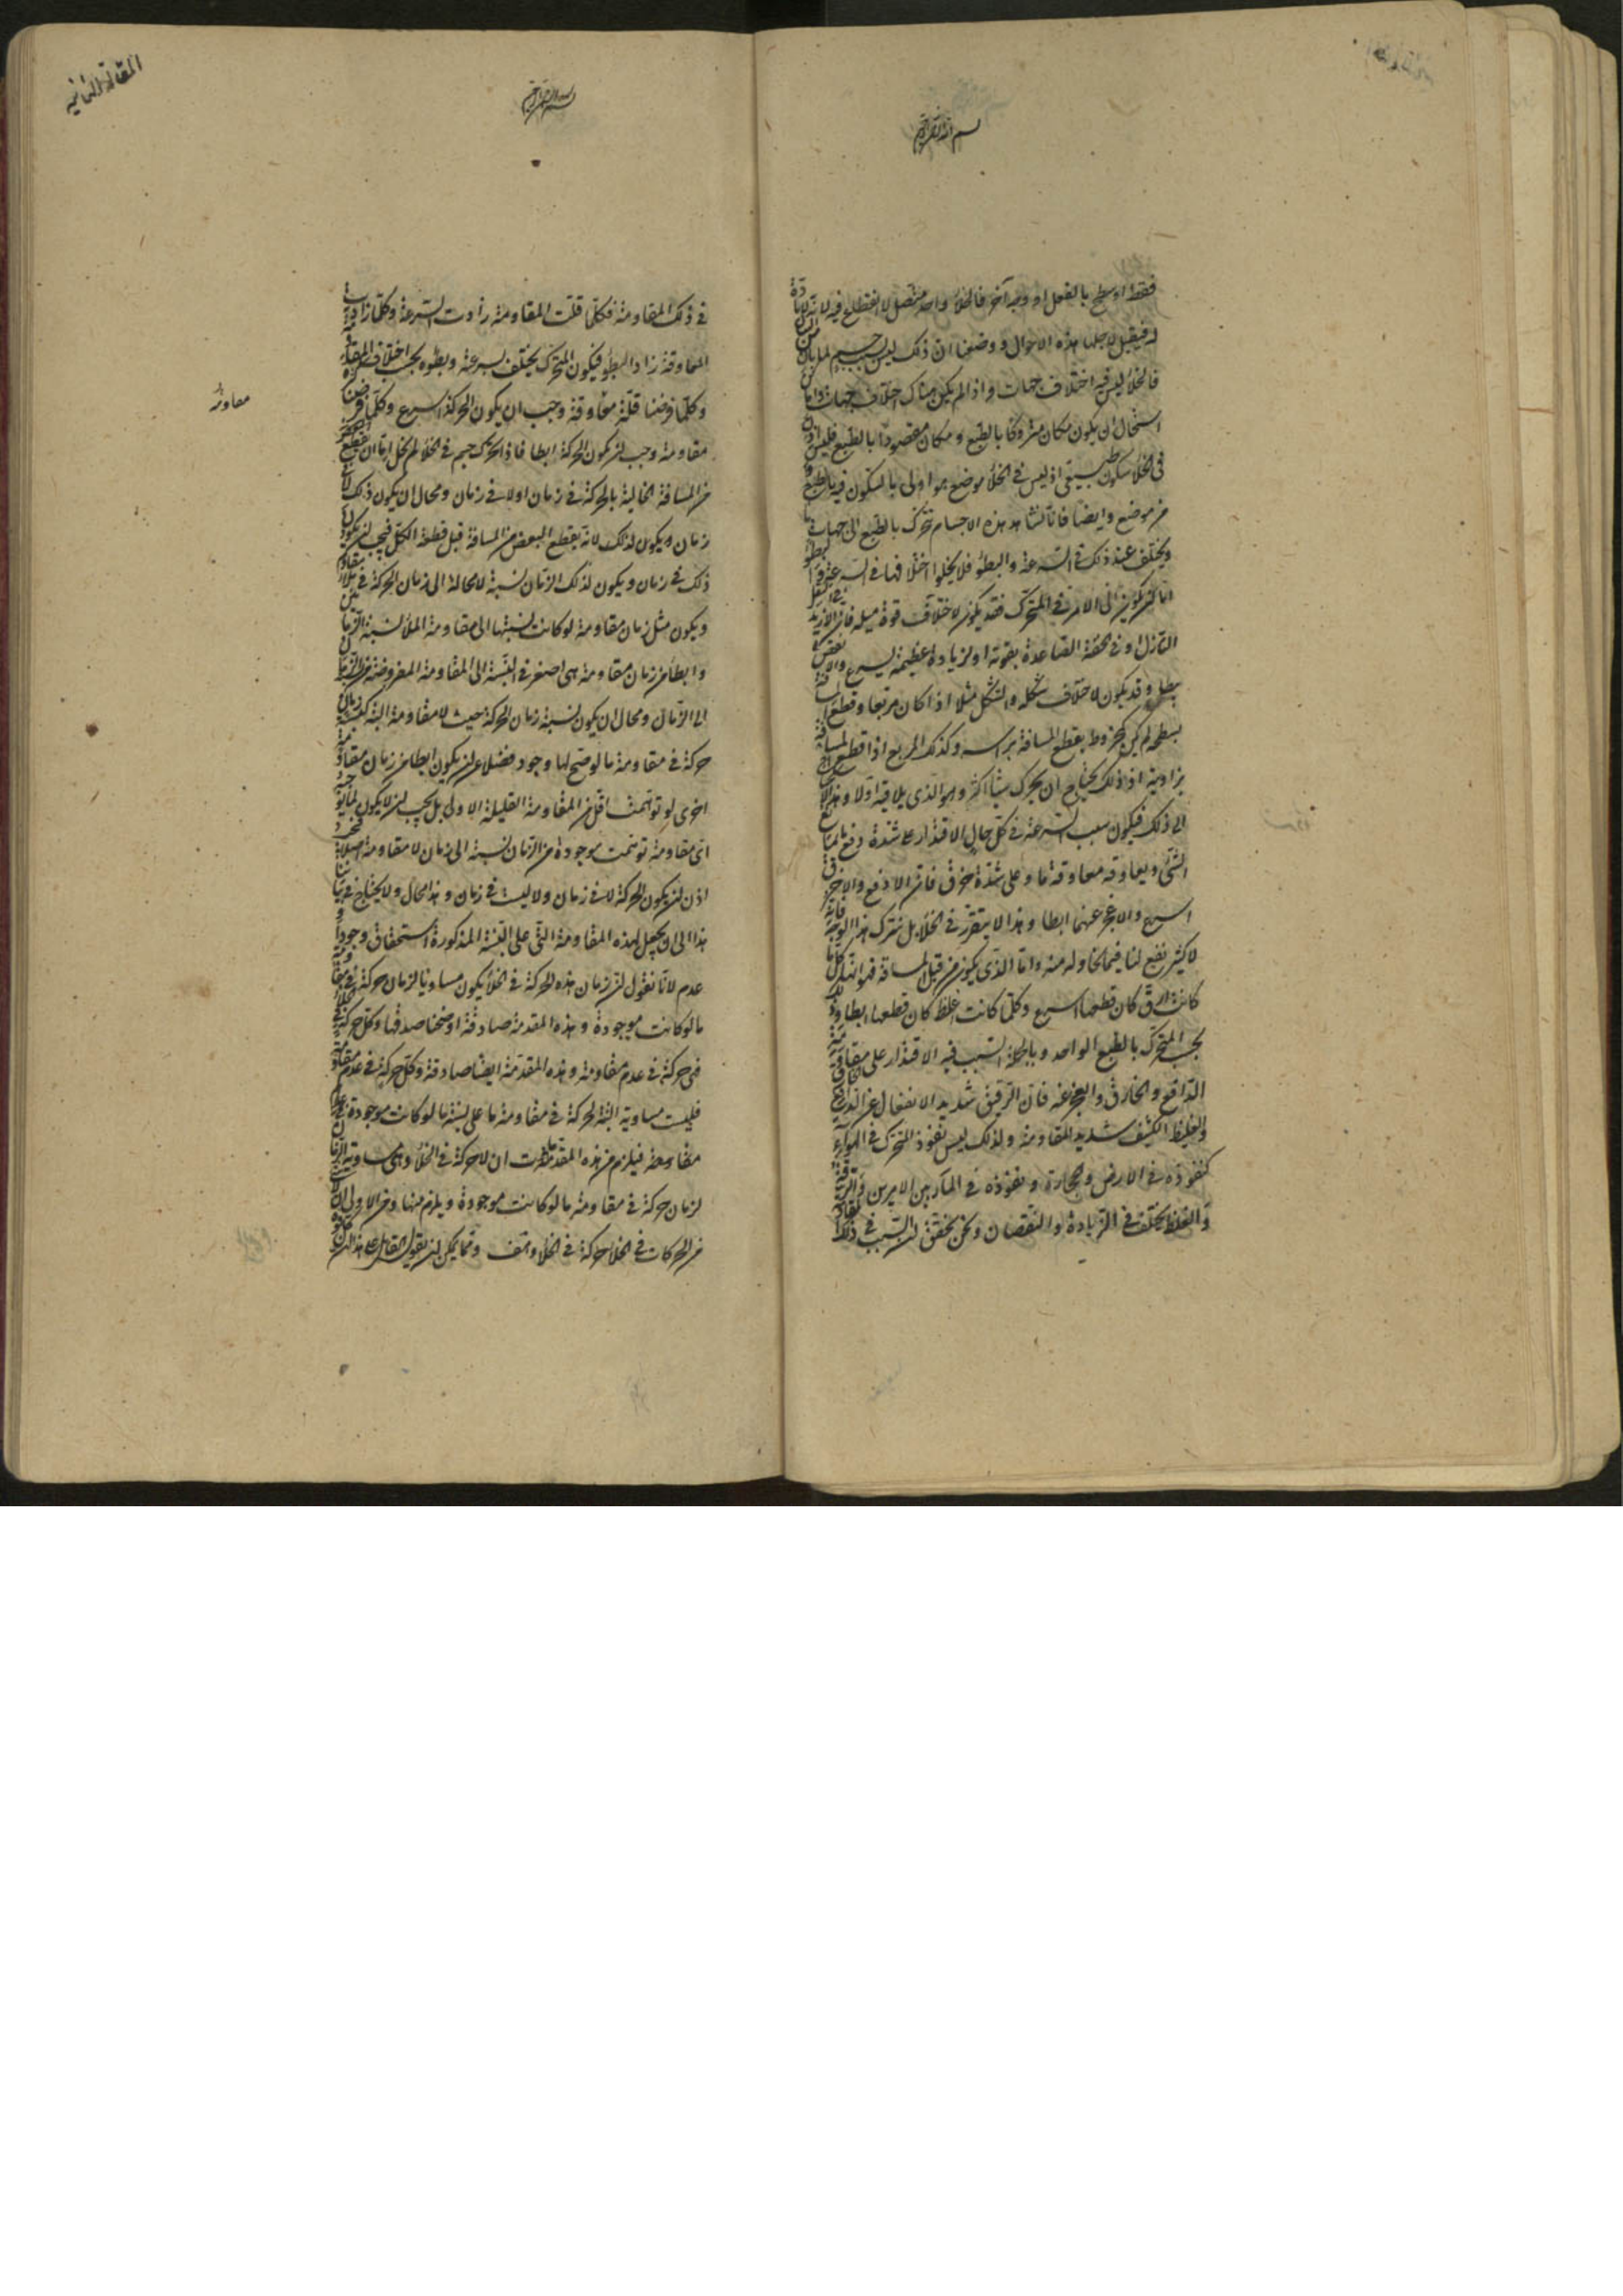 بسم الله الرحمن الرحيم
فقط او سطح بالفعل او وجه آخر فالخلأ واحد متصل لا انقطاع فيه لانه لا مادة
له فيقبل لاجلها هذه الاحوال ووضعنا ان ذلك ليس بسبب جسم
فالخلأ ليس فيه اختلاف جهات واذا لم يكن هناك اختلاف جهات واماكن
استحال ان يكون مكان متروكا بالطبع ومكان مقصودا بالطبع فليس اذن
فى الخلأ سكون طبيعى اذ ليس فى الخلأ موضع هو اولى بالسكون فيه بالطبع
من موضع وايضا فانا نشاهد هذه الاجسام تتحرك بالطبع الى جهات ما
ويختلف عند ذلك فى السرعة والبطؤ فلا يخلوا اختلافها فى السرعة والبطؤ
اما ان يكون الى الامر فى المتحرك فقد يكون لاختلاف قوة ميله فان الازيد فى الثقل
النازل او فى الخفة الصاعدة بقوته او لزيادة عظيمة يسرع والانقص
يبطى وقد يكون لاختلاف شكله والشكل مثلا اذا كان مربعا وقطع المسافة
بسطحه لم يكن كمخروط يقطع المسافة براسه وكذلك المربع اذا قطع المسافة
بزاويته اذ ذلك يحتاج ان يحرك شيئا اكثر وهو الذى يلاقيه اولا وهذا لا يحتاج
الى ذلك فيكون سبب السرعة فى كل حال الاقتدار على شدة دفع ما يمانع
الشئ ويعاوقه معاوقة ما وعلى شدة خرق فان الادفع والاخرق
اسرع والاعجز عنهما ابطا وهذا لا يتقرر فى الخلأ بل نترك هذا الوجه فانه
لا كثير نفع لنا فيما نحاوله منه واما الذى يكون من قبل المسافة فهو انها كلما
كانت ارق كان قطعها اسرع وكلما كانت اغلظ كان قطعها ابطا وذلك
بحسب المتحرك بالطبع الواحد وبالجملة السبب فيه الاقتدار على مقاومة
الدافع والخارق والعجز عنه فان الرقيق شديد الانفعال عن الدافع الخارق
والغليظ الكثيف شديد المقاومة ولذلك ليس نفوذ المتحرك فى الهوآء
كنفوذه فى الارض والحجارة ونفوذه فى المآء بين الامرين والرقة
والغلظ يختلف فى الزيادة والنقصان ونحن نتحقق ان السبب فى ذلك المقاومة
المقالة الثانية
بسم الله الرحمن الرحيم
فى ذلك المقاومة فكلما قلت المقاومة زادت السرعة وكلما زادت
المعاوقة زاد البطؤ فيكون المتحرك يختلف سرعته وبطؤه بحسب اختلاف المقاومة
معاوقة
وكلما فرضنا قلة معاوقة وجب ان يكون الحركة اسرع وكلما فرضنا كثرة
مقاومة وجب ان يكون الحركة ابطا فاذا تحرك جسم فى الخلأ لم يخل اما ان يقطع
من المسافة الخالية بالحركة فى زمان او لا فى زمان ومحال ان يكون ذلك لا فى
زمان ويكون لذلك لانه يقطع البعض من المسافة قبل قطعه الكل فيجب ان يكون
ذلك فى زمان ويكون لذلك الزمان نسبة لا محالة الى زمان الحركة فى ملأ مقاوم
ويكون مثل زمان مقاومة لو كانت نسبتها الى مقاومة الملأ نسبة الزمانين
وابطأ من زمان مقاومة هى اصغر فى النسبة الى المقاومة المفروضة من الزمان
الى الزمان ومحال ان يكون نسبة زمان الحركة حيث لا مقاومة البتة كنسبة زمان
حركة فى مقاومة ما لو صح لها وجود فضلا عن ان يكون ابطا من زمان مقاومة
اخرى لو توهمت اقل من المقاومة القليلة الاولى بل يجب ان لا يكون لما يوجبه
اى مقاومة توهمت موجودة من الزمان نسبة الى زمان لا مقاومة اصلا
اذن ان يكون الحركة لا فى زمان ولا ليست فى زمان وهذا محال ولا يحتاج فى بياننا
هذا الى ان يجعل لهذه المقاومة التى على النسبة المذكورة استحقاق وجود او
عدم لانا نقول ان زمان هذه الحركة فى الخلأ يكون مساويا لزمان حركة فى مقاومة
ما لو كانت موجودة وهذه المقدمة صادقة اوضحنا صدقها وكل حركة فى الخلأ
فهى حركة فى عدم مقاومة وهذه المقدمة ايضا صادقة وكل حركة فى عدم مقاومة
فليست مساوية البتة لحركة فى مقاومة ما على نسبة ما لو كانت موجودة
مقاومة فيلزم من هذه المقدمات ان لا حركة فى الخلأ وهى مساوية الزمان
لزمان حركة فى مقاومة ما لو كانت موجودة ويلزم منها ومن الاولى ان لا شئ
من الحركات فى الخلأ حركة فى الخلأ وهذا خلف ومما يمكن ان يقول القائل على هذا